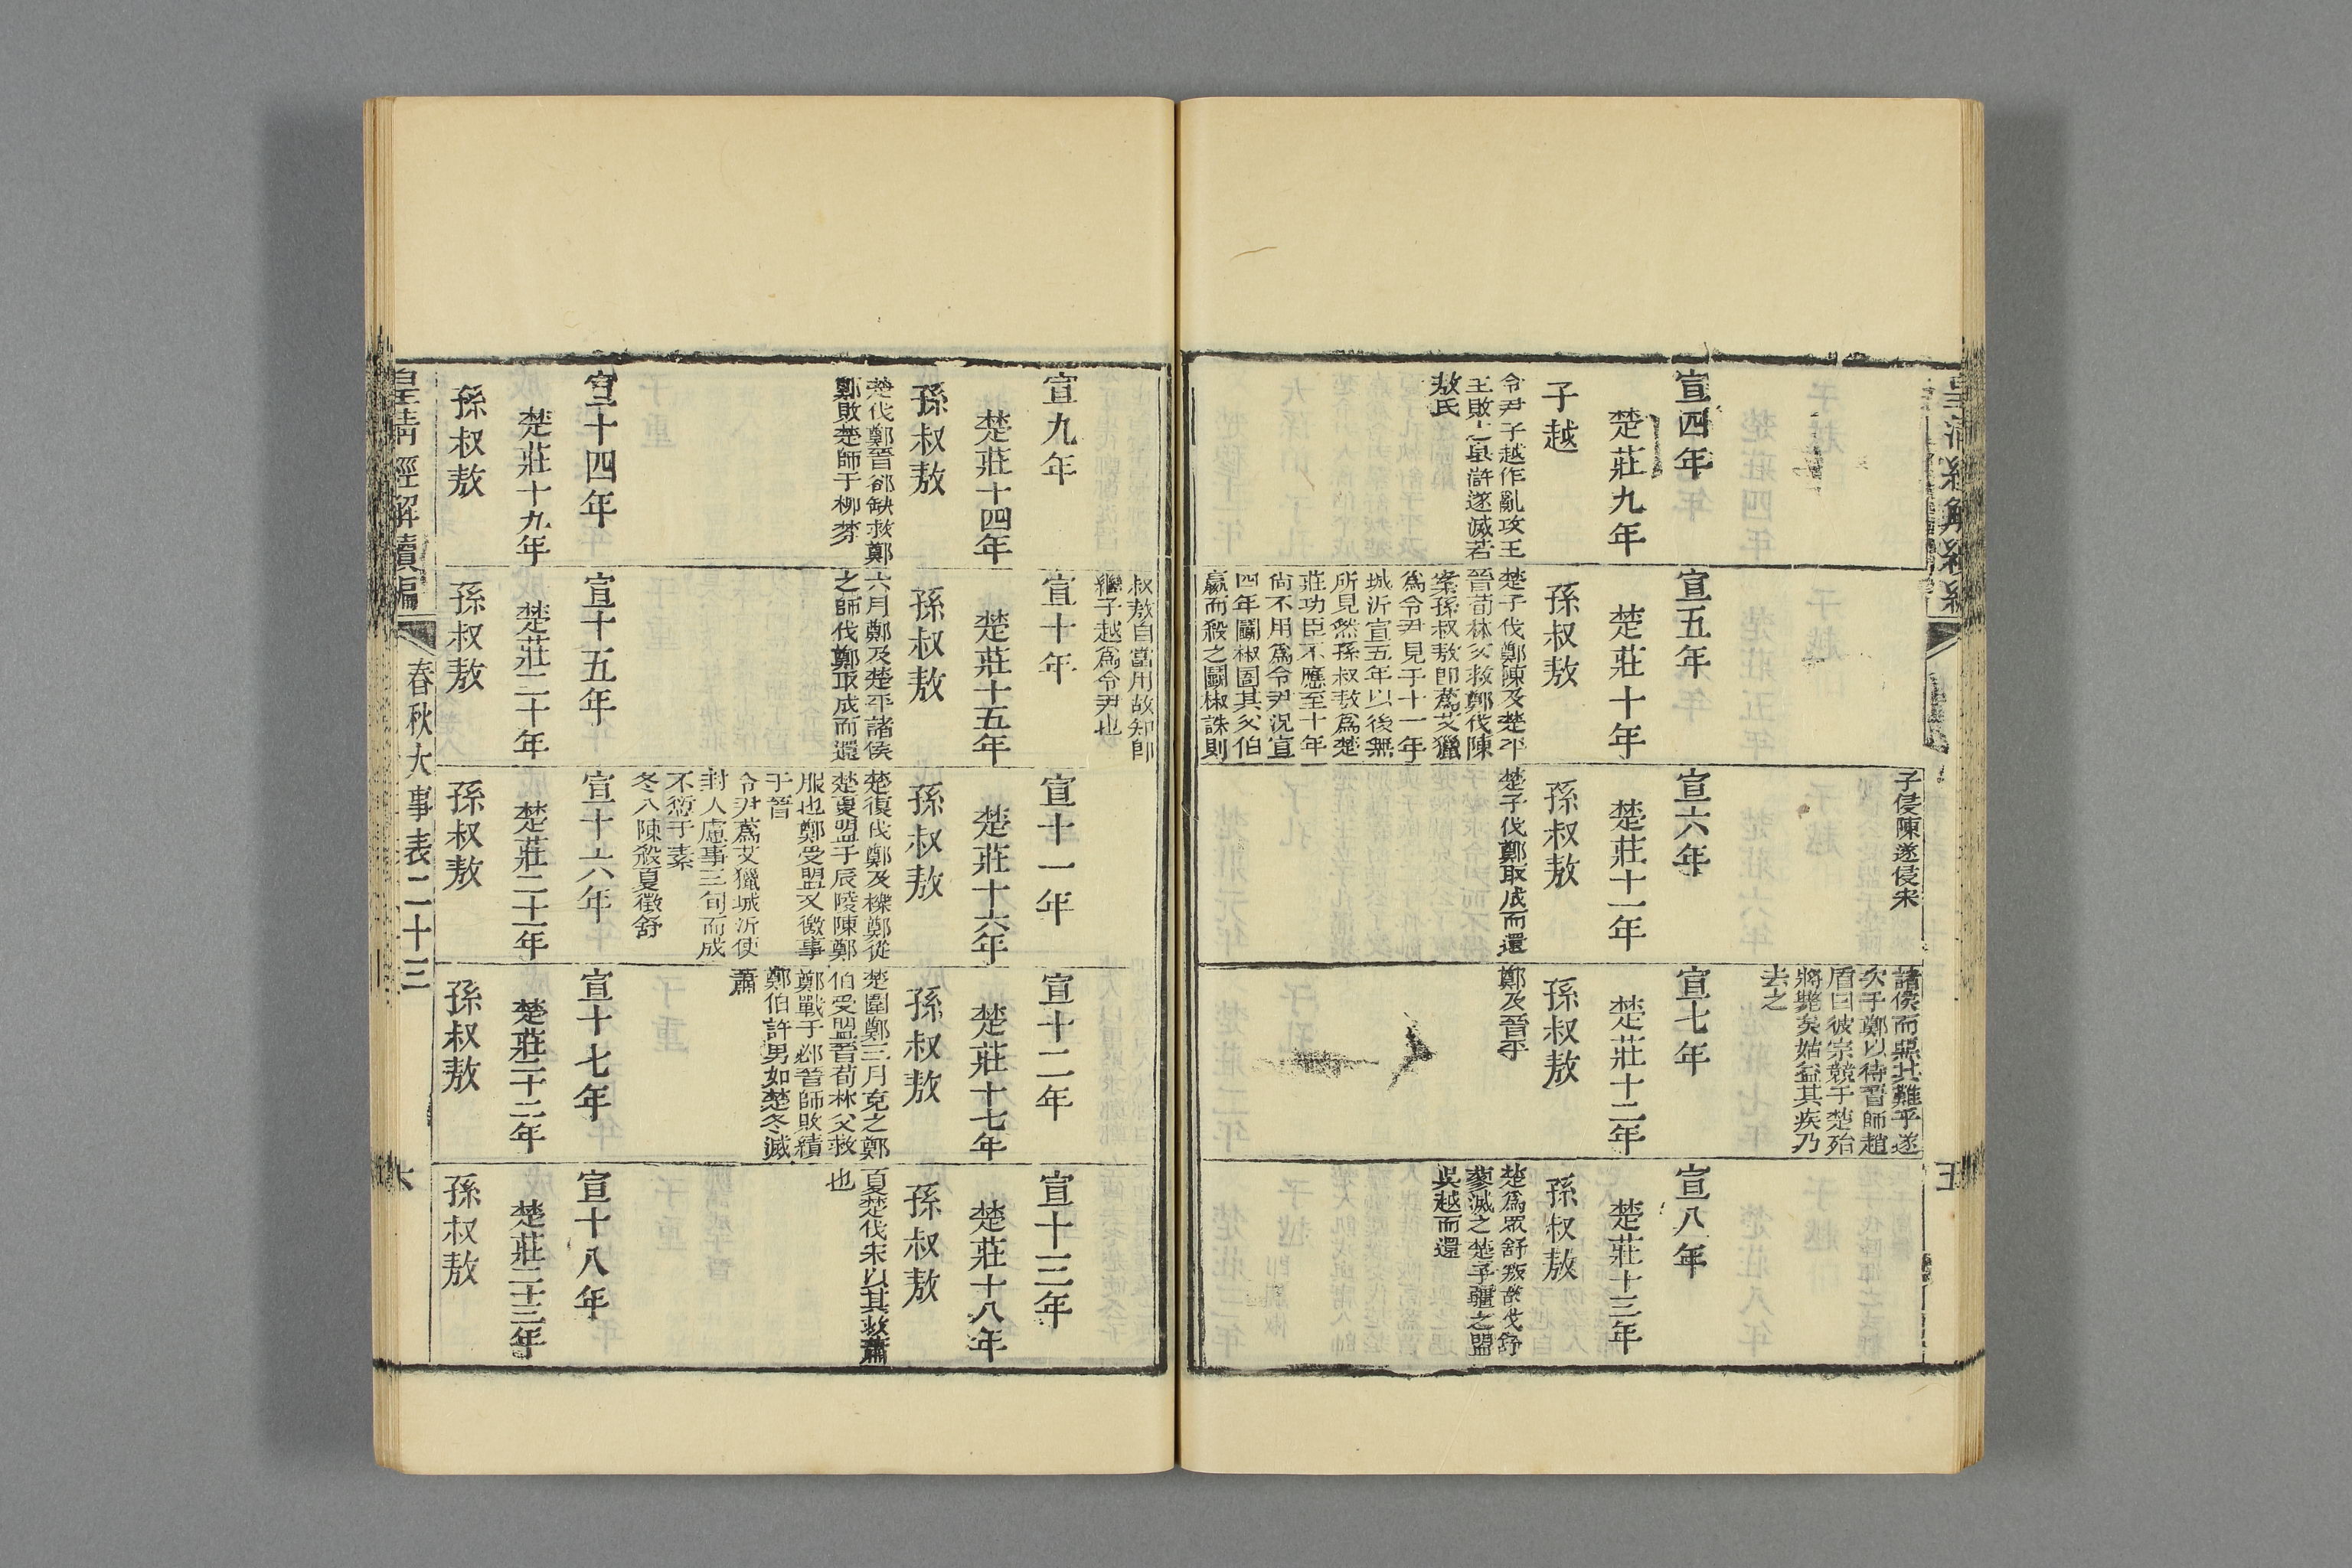 子侵陳遂侵宋
諸侯而惡其難乎遂
次于鄭以待晉師趙
盾曰彼宗競于楚殆
將斃矣姑益其疾乃
去之
宣四年
楚莊九年
子越
令尹子越作亂攻王
王敗之皐滸遂滅若
敖氏
宣五年
楚莊十年
孫叔敖
楚子伐鄭陳及楚平
晉荀林父救鄭伐陳
案孫叔敖即蒍艾獵
爲令尹見于十一年
城沂宣五年以後無
所見然孫叔敖爲楚
莊功臣不應至十年
尚不用爲令尹況宣
四年鬬椒圄其父伯
嬴而殺之鬬椒誅則
宣六年
楚莊十一年
孫叔敖
楚子伐鄭取成而還
宣七年
楚莊十二年
孫叔敖
鄭及晉平
宣八年
楚莊十三年
孫叔敖
楚爲眾舒叛故伐舒
蓼滅之楚子疆之盟
吳越而還
叔敖自當用故知即
繼子越爲令尹也
宣九年
楚莊十四年
孫叔敖
楚伐鄭晉郤缺救鄭
鄭敗楚師于柳棼
宣十年
楚莊十五年
孫叔敖
六月鄭及楚平諸侯
之師伐鄭取成而還
宣十一年
楚莊十六年
孫叔敖
楚復伐鄭及櫟鄭從
楚夏盟于辰陵陳鄭
服也鄭受盟又徼事
于晉
令尹蒍艾獵城沂使
封人慮事三旬而成
不愆于素
冬入陳殺夏徵舒
宣十二年
楚莊十七年
孫叔敖
楚圍鄭三月克之鄭
伯受盟晉荀林父救
鄭戰于邲晉師敗績
鄭伯許男如楚冬滅
蕭
宣十三年
楚莊十八年
孫叔敖
夏楚伐宋以其救蕭
也
宣十四年
楚莊十九年
孫叔敖
宣十五年
楚莊二十年
孫叔敖
宣十六年
楚莊二十一年
孫叔敖
宣十七年
楚莊二十二年
孫叔敖
宣十八年
楚莊二十三年
孫叔敖
皇清經解續編
春秋大事表二十三